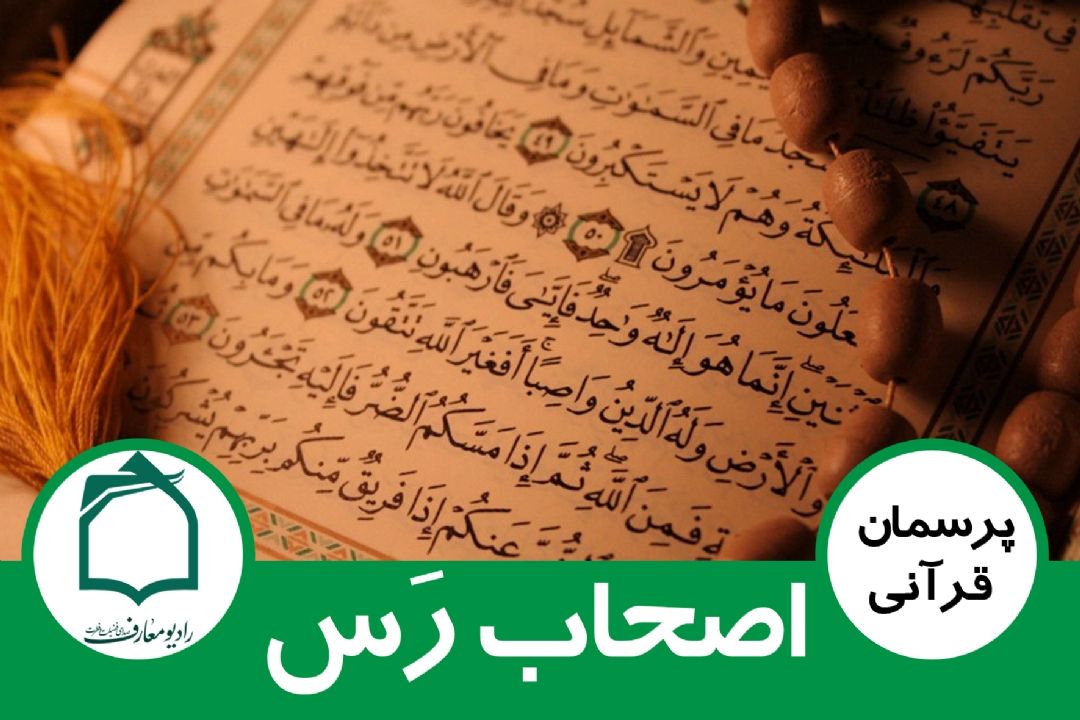 فِى تَقَلُّبِهِمْ
رَبَّكُمْ لَرَءُوفٌ
يَتَفَيَّؤُا۟ ظِلَـٰلُهُ ٱلْيَمِينِ وَٱلشَّمَآئِلِ سُجَّدًا
٤٨ يَسْجُدُ مَا فِى ٱلسَّمَـٰوَٰتِ وَمَا فِى ٱلْأَرْضِ مِن دَآبَّةٍ
وَٱلْمَلَـٰٓئِكَةُ وَهُمْ لَا يَسْتَكْبِرُونَ ٤٩ يَخَافُونَ رَبَّهُم مِّن فَوْقِهِمْ
يَفْعَلُونَ مَا يُؤْمَرُونَ ۩ ٥٠ ۞ وَقَالَ ٱللَّهُ لَا تَتَّخِذُوٓا۟ إِلَـٰهَيْنِ
ٱثْنَيْنِ ۖ إِنَّمَا هُوَ إِلَـٰهٌ وَٰحِدٌ ۖ فَإِيَّـٰىَ فَٱرْهَبُونِ ٥١ وَلَهُۥ مَا فِى ٱلسَّمَـٰوَٰتِ
وَٱلْأَرْضِ وَلَهُ ٱلدِّينُ وَاصِبًا ۚ أَفَغَيْرَ ٱللَّهِ تَتَّقُونَ ٥٢ وَمَا بِكُم مِّن
فَمِنَ ٱللَّهِ ۖ ثُمَّ إِذَا مَسَّكُمُ ٱلضُّرُّ فَإِلَيْهِ تَجْـَٔرُونَ ٥٣
عَنكُمْ إِذَا فَرِيقٌ مِّنكُم بِرَبِّهِمْ يُشْرِكُونَ
پرسمان
قرآنی
اصحاب رَس
رادیو معارف صدای فضیلت و فطرت